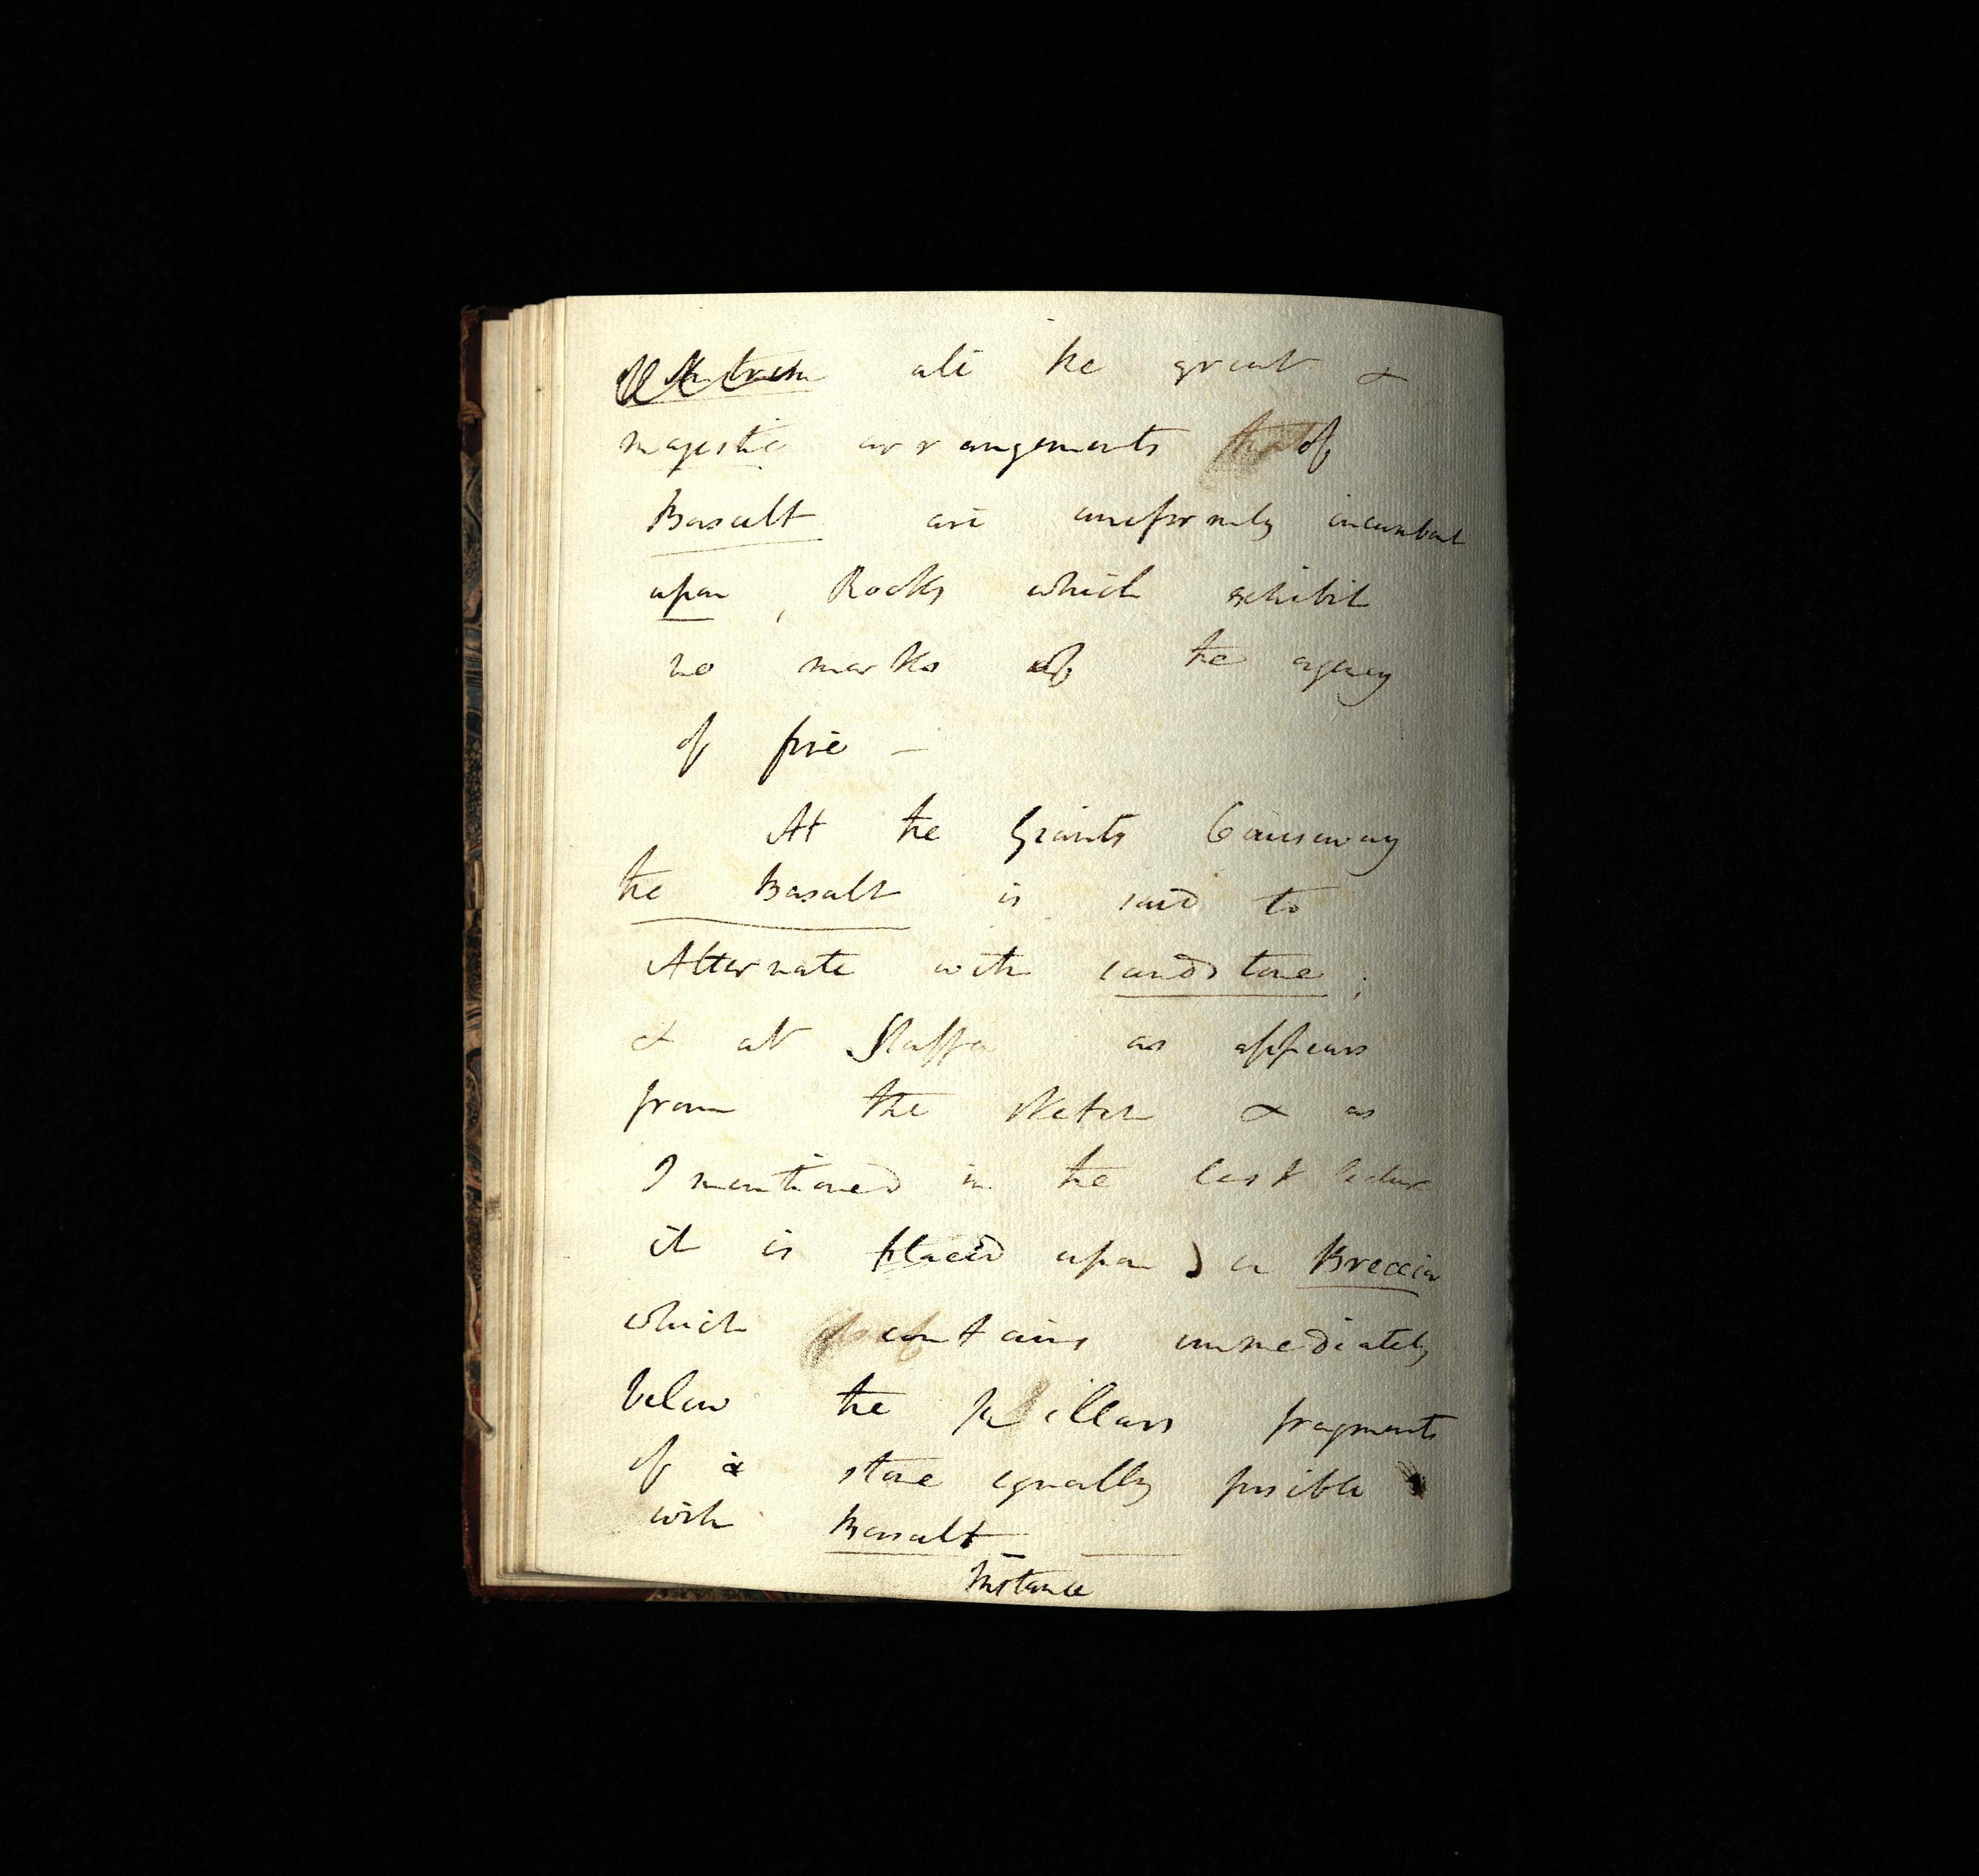 all the great &
majestic arrangements of
Basalt are uniformly incumbent
upon, Rocks which exhibit
no marks of the agency
of fire —
At the Giants Causeway
the Basalt is said to
Alternate with sandstone;
& at Staffa as appears
from the sketch & as
I mentioned in the last lecture
it is placed upon a Breccia
which contains immediately
below the Pillars fragments
of a stone equally fusible
with Basalt – —
Instance